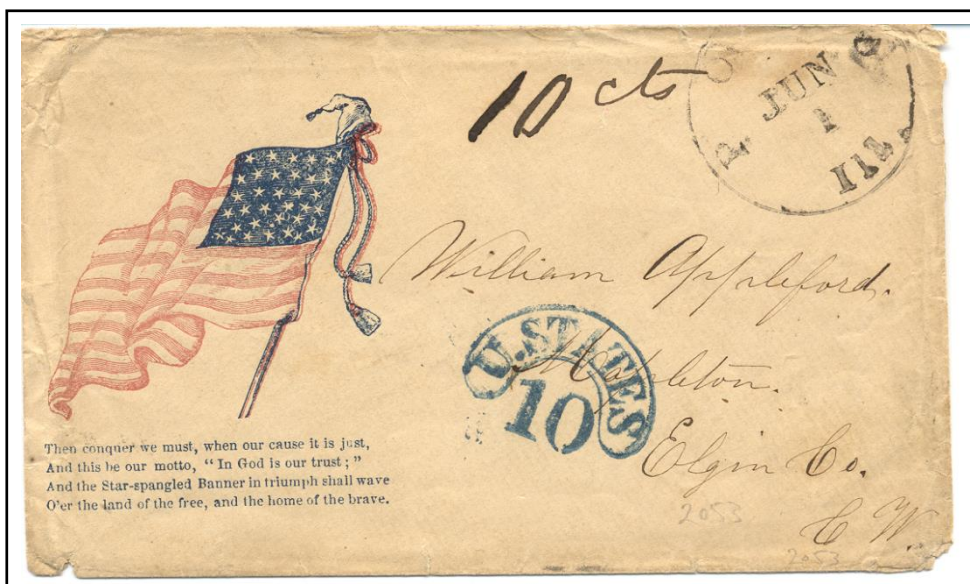 10 cts
JUN
1
Ill.
William Appleford.
U. STATES
10
Mapleton.
Elgin Co.
C W.
Then conquer we must, when our cause it is just,
And this be our motto, “ In God is our trust ; ”
And the Star-spangled Banner in triumph shall wave
O'er the land of the free, and the home of the brave.
2053
2053